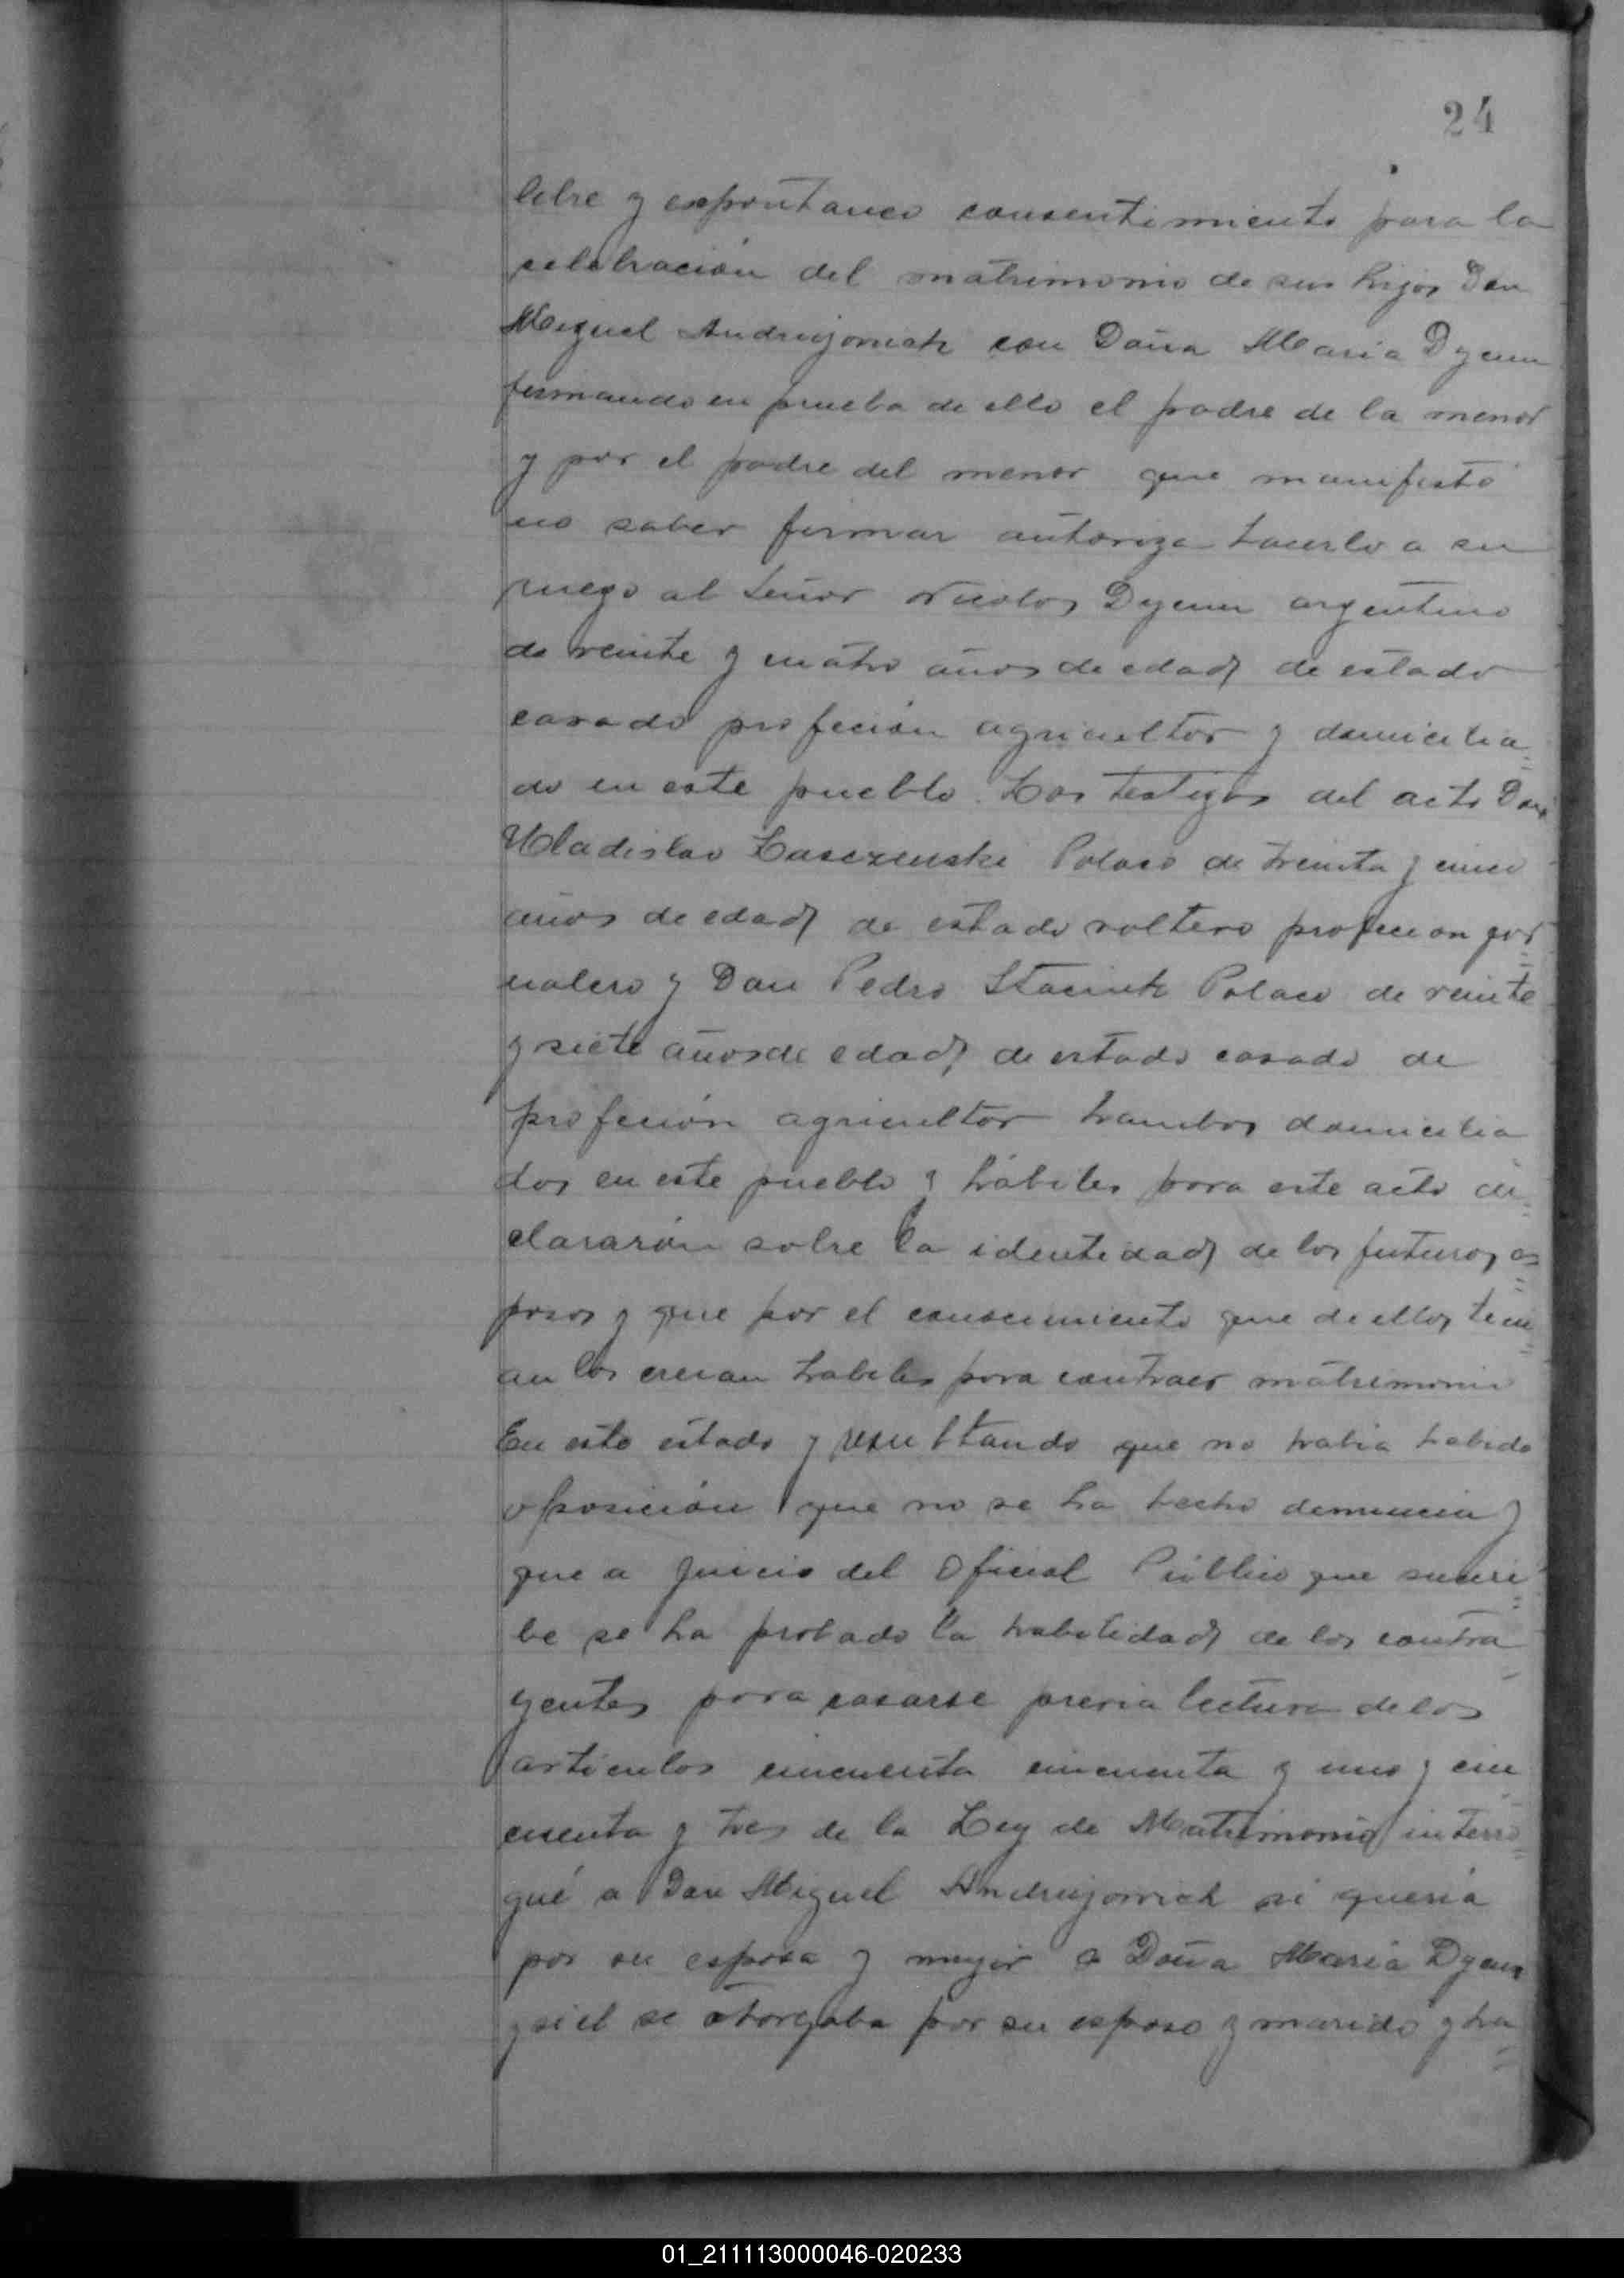 24
libre y espontaneo consentimiento para la
celebración del matrimonio de sus hijos Don
Miguel Andrujovich con Doña Maria Dyem
firmando en prueba de ello el padre de la menor
y por el padre del menor que manifestó
no saber firmar autoriza hacerlo a su
ruego al Señor Nicolas Dyem argentino
de veinte y cuatro años de edad de estado
casado profeción agricultor y domicilia
do en este pueblo. Los testigos del acto Don
Uladislao Lasezenski Polaco de treinta y cinco
años de edad de estado soltero profecion jor
nalero y Don Pedro Staciuk Polaco de veinte
y siete años de edad de estado casado de
profeción agricultor hambos domicilia
dos en este pueblo y hábiles para este acto de
clararón sobre la identidad de los futuros es
posos y que por el conocimiento que de ellos teni
an los creian habiles para contraer matrimonio
En este estado y resultando que no habia habido
oposición que no se ha hecho denuncia y
que a juicio del Oficial Público que suscri
be se ha probado la habilidad de los contra
yentes para casarse previa lectura de los
articulos cincuenta cincuenta y uno y cin
cuenta y tres de la Ley de Matrimonio interro
gué a Don Miguel Andrujovich si quería
por su esposa y mujer a Doña Maria Dyem
y si el se otorgaba por su esposo y marido y ha
01_211113000046-020233